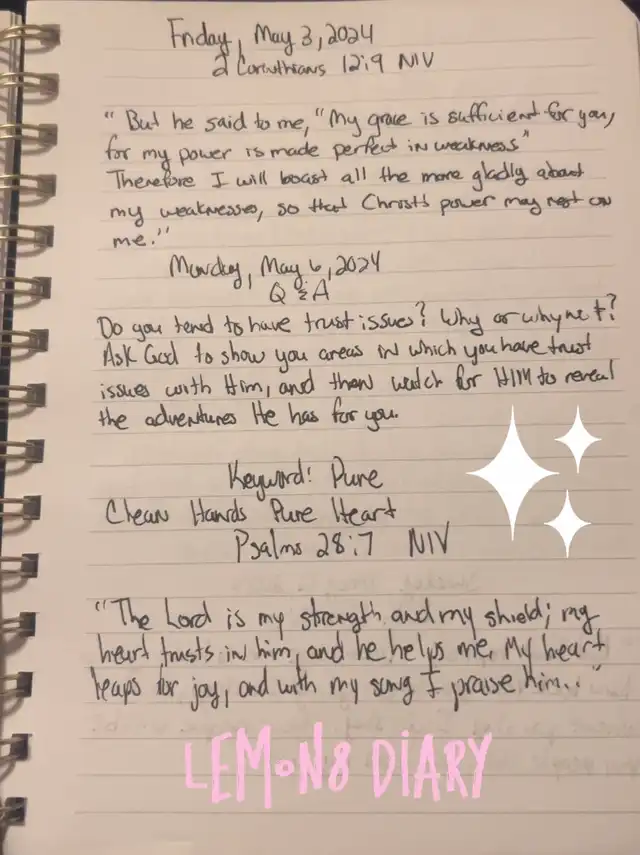 Friday, May 3, 2024
2 Corinthians 12:9 NIV
"But he said to me, "My grace is sufficient for you,
for my power is made perfect in weakness"
Therefore I will boast all the more gladly about
my weaknesses, so that Christ's power may rest on
me."
Monday, May 6, 2024
Q & A
Do you tend to have trust issues? Why or why not?
Ask God to show you areas in which you have trust
issues with Him, and then watch for HIM to reveal
the adventures He has for you.
Keyword: Pure
Clean Hands Pure Heart
Psalms 28:7 NIV
"The Lord is my strength and my shield; my
heart trusts in him, and he helps me. My heart
leaps for joy, and with my song I praise him.."
LEMON8 DIARY